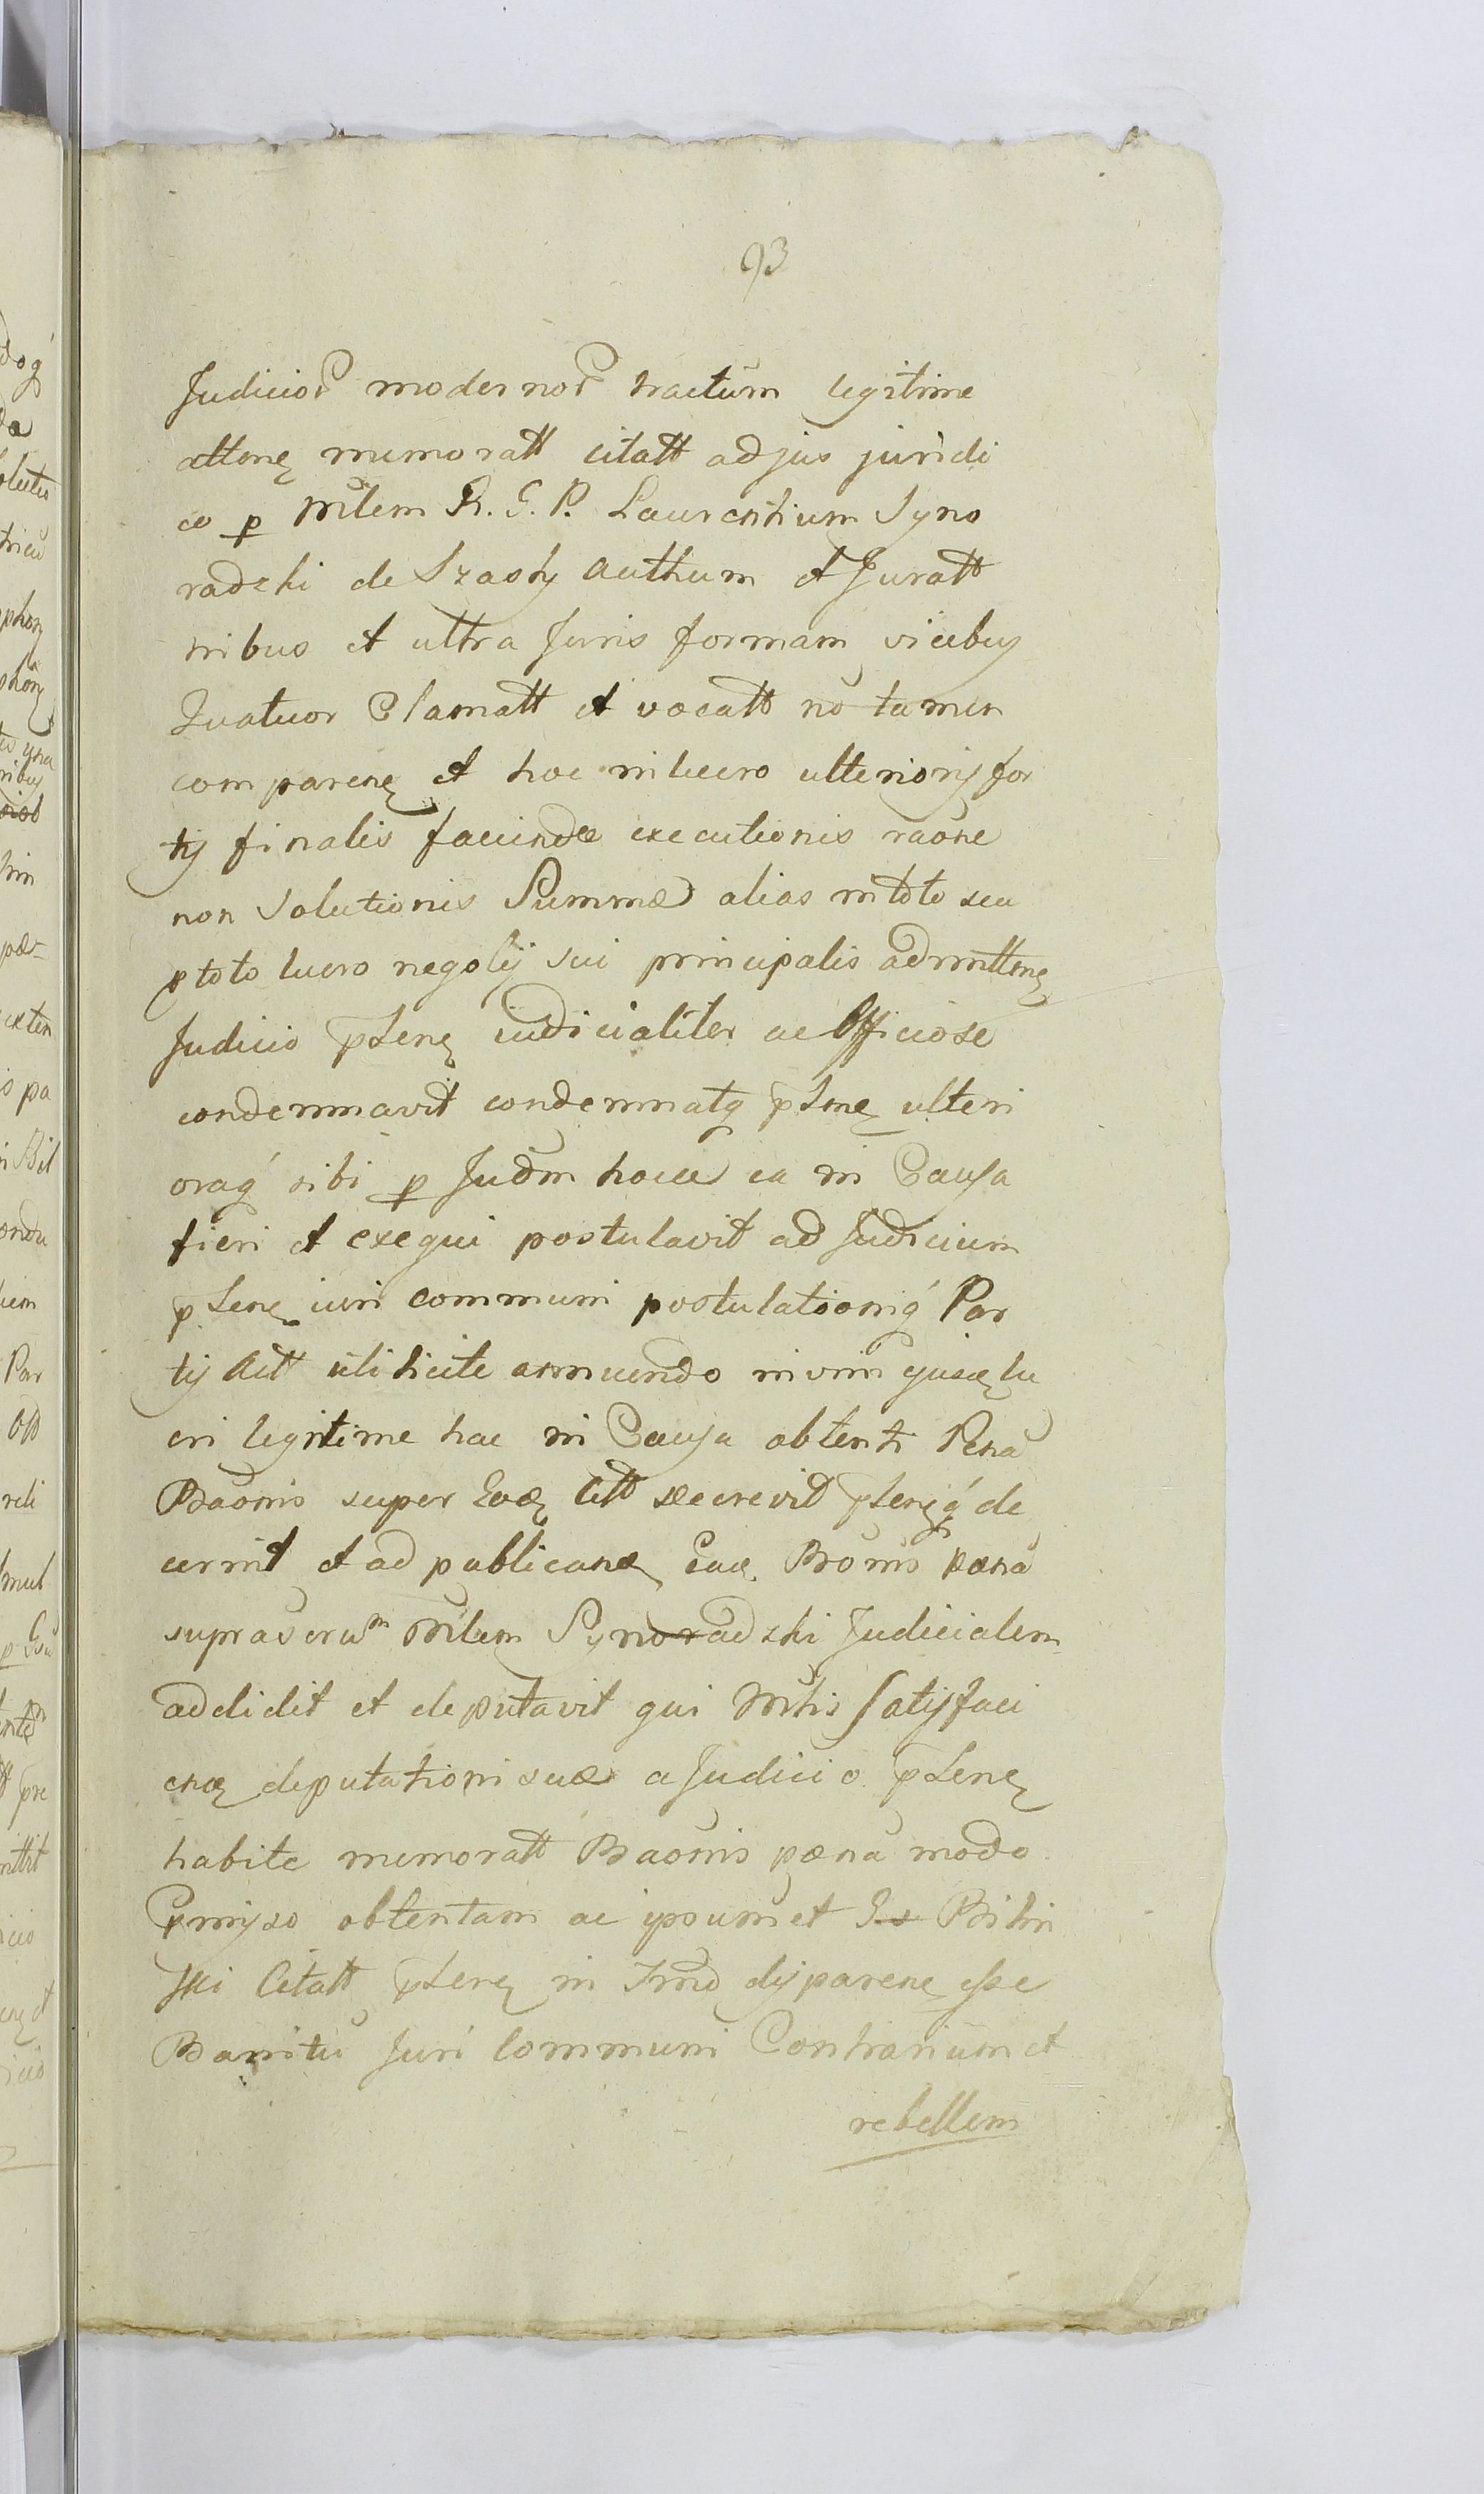 93
Judicior modernor tractum legitime
attenę memoratt citatt ad jus juridi
ce p Mĩlem R. G. P. Laurentium Syno
radzki de Szasty Authum et Juratt
tribus et ultra Juris formam vicibus
Quatuor Clamatt et vocatt nō tamen
comparenę et hoc in lucro ulterioris for
tis finalis faciendæ executionis raõne
non Solutionis Summæ alias in toto seu
p toto lucro negotij sui principalis admittenę
Judicio pñtenę iudicialiter ac Officiose
condemnavit condemnatq pntenę ulteri
oraq sibi p Judm hocce ea in Causa
fieri et exequi postulavit ad Judicium
pntenę iuri communi postulationiq Par
tis Act licite annuendo in vim lu
cri legitime hac in Causa obtenti Penā
Baõnis super Citt decrevit pnteniq de
cernit et ad publicanę Baõnis pœnā
suprascrūm Mĩlem Synoradzki Judicialem
addidit et deputavit qui Mĩlis satisfaci
enę deputationi suæ a Judicio pntenę
habite memoratt Baõnis pœnā modo
pmisso obtentam ac ipsummet Bilin
ski Citatt pntenę in Imõ disparenę esse
Banitū Juri Communi Contrarium et
rebellem